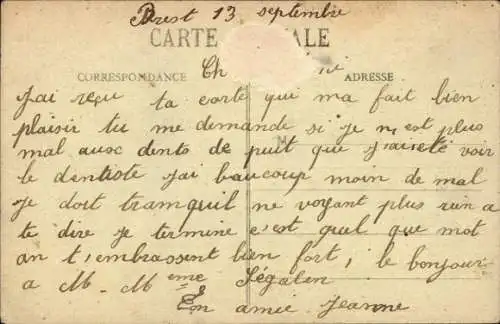 Brest 13 septembre
CARTE ALE
CORRESPONDANCE ADRESSE
Ch
J'ai reçu ta carte qui ma fait bien
plaisir tu me demande si je n'est plus
mal aux dents de puit que j'ai été voir
le dentiste j'ai beaucoup moin de mal
je dort tramquil ne voyant plus rien a
te dire je termine c'est quel que mot
an t'embrassent bien fort, le bonjour
a M. Meme Ségalen
Ton amie Jeanne